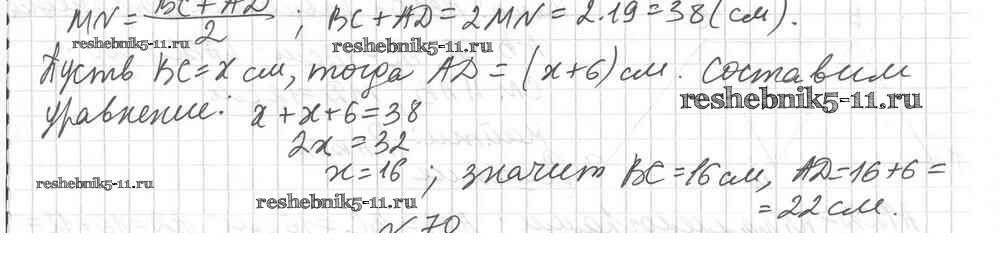 MN = BC + AD / 2 ; BC + AD = 2MN = 2·19 = 38 (см).
reshebnik5-11.ru reshebnik5-11.ru
Пусть BC = x см, тогда AD = (x+6) см. Составим
reshebnik5-11.ru
уравнение: x + x + 6 = 38
2x = 32
x = 16 ; значит BC = 16 см, AD = 16 + 6 =
reshebnik5-11.ru
reshebnik5-11.ru
= 22 см.
№70